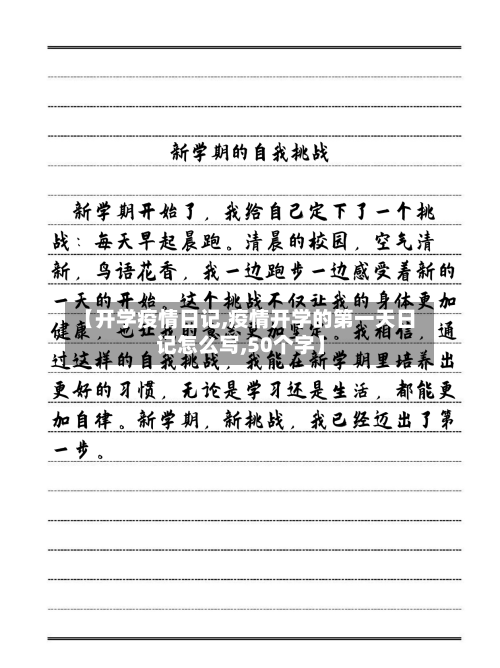 新学期的自我挑战
新学期开始了，我给自己定下了一个挑
战：每天早起晨跑。清晨的校园，空气清
新，鸟语花香，我一边跑步一边感受着新的
一天的开始。这个挑战不仅让我的身体更加
【开学疫情日记,疫情开学的第一天日
健康，也让我的
。我相信，通
记怎么写,50个字】
过这样的自我挑战，我能在新学期里培养出
更好的习惯，无论是学习还是生活，都能更
加自律。新学期，新挑战，我已经迈出了第
一步。